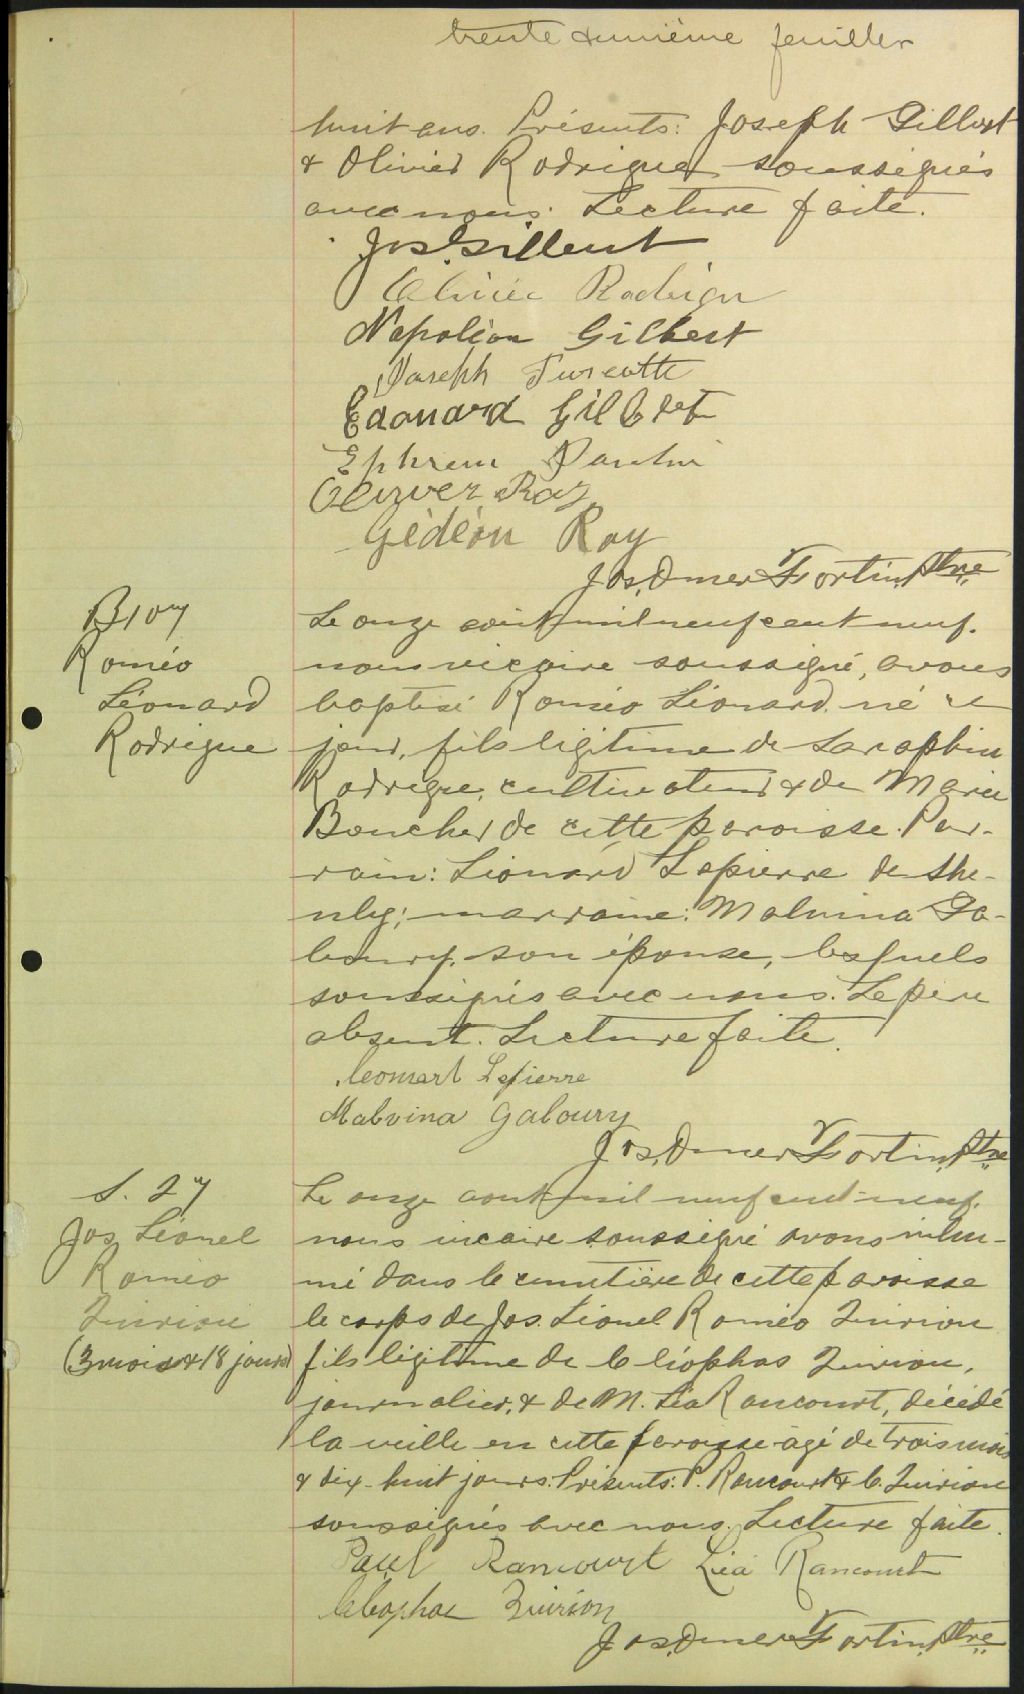 trente & unième feuillet
huit ans. Présents: Joseph Gilbert
& Olivier Rodrigue soussignés
avec nous. Lecture faite.
Jos. Gilbert
Olivier Rodrigu
Napoléon Gilbert
Joseph Turcotte
Edouard Gilbert
Ephrem Poulin
Oliver Roy
Gédéon Roy
Jos. Omer Fortin, Ptre
B107
Roméo
Léonard
Rodrigue
Le onze août mil neuf cent neuf.
nous vicaire soussigné, avons
baptisé Roméo Léonard né ce
jour, fils légitime de Seraphin
Rodrigue, cultivateur & de Marie
Boucher de cette paroisse. Par-
rain: Léonard Lapierre de She-
nley; marraine: Malvina Ga-
boury, son épouse, lesquels
soussignés avec nous. Le père
absent. Lecture faite.
Leonard Lapierre
Malvina Galoury
Jos. Omer Fortin, Ptre
S. 27
Jos Léonel
Roméo
Quirion
(3 mois & 18 jours)
Le onze aout mil neuf cent-neuf.
nous vicaire soussigné avons inhu-
mé dans le cimetière de cette paroisse
le corps de Jos. Léonel Roméo Quirion
fils légitime de Cléophas Quirion,
journalier, & de M. Léa Rancourt, décédé
la veille en cette paroisse âgé de trois mois
& dix-huit jours. Présents: P. Rancourt & C. Quirion
soussignés avec nous. Lecture faite.
Paul Rancourt Léa Rancourt
Cléophas Quirion
Jos. Omer Fortin, Ptre